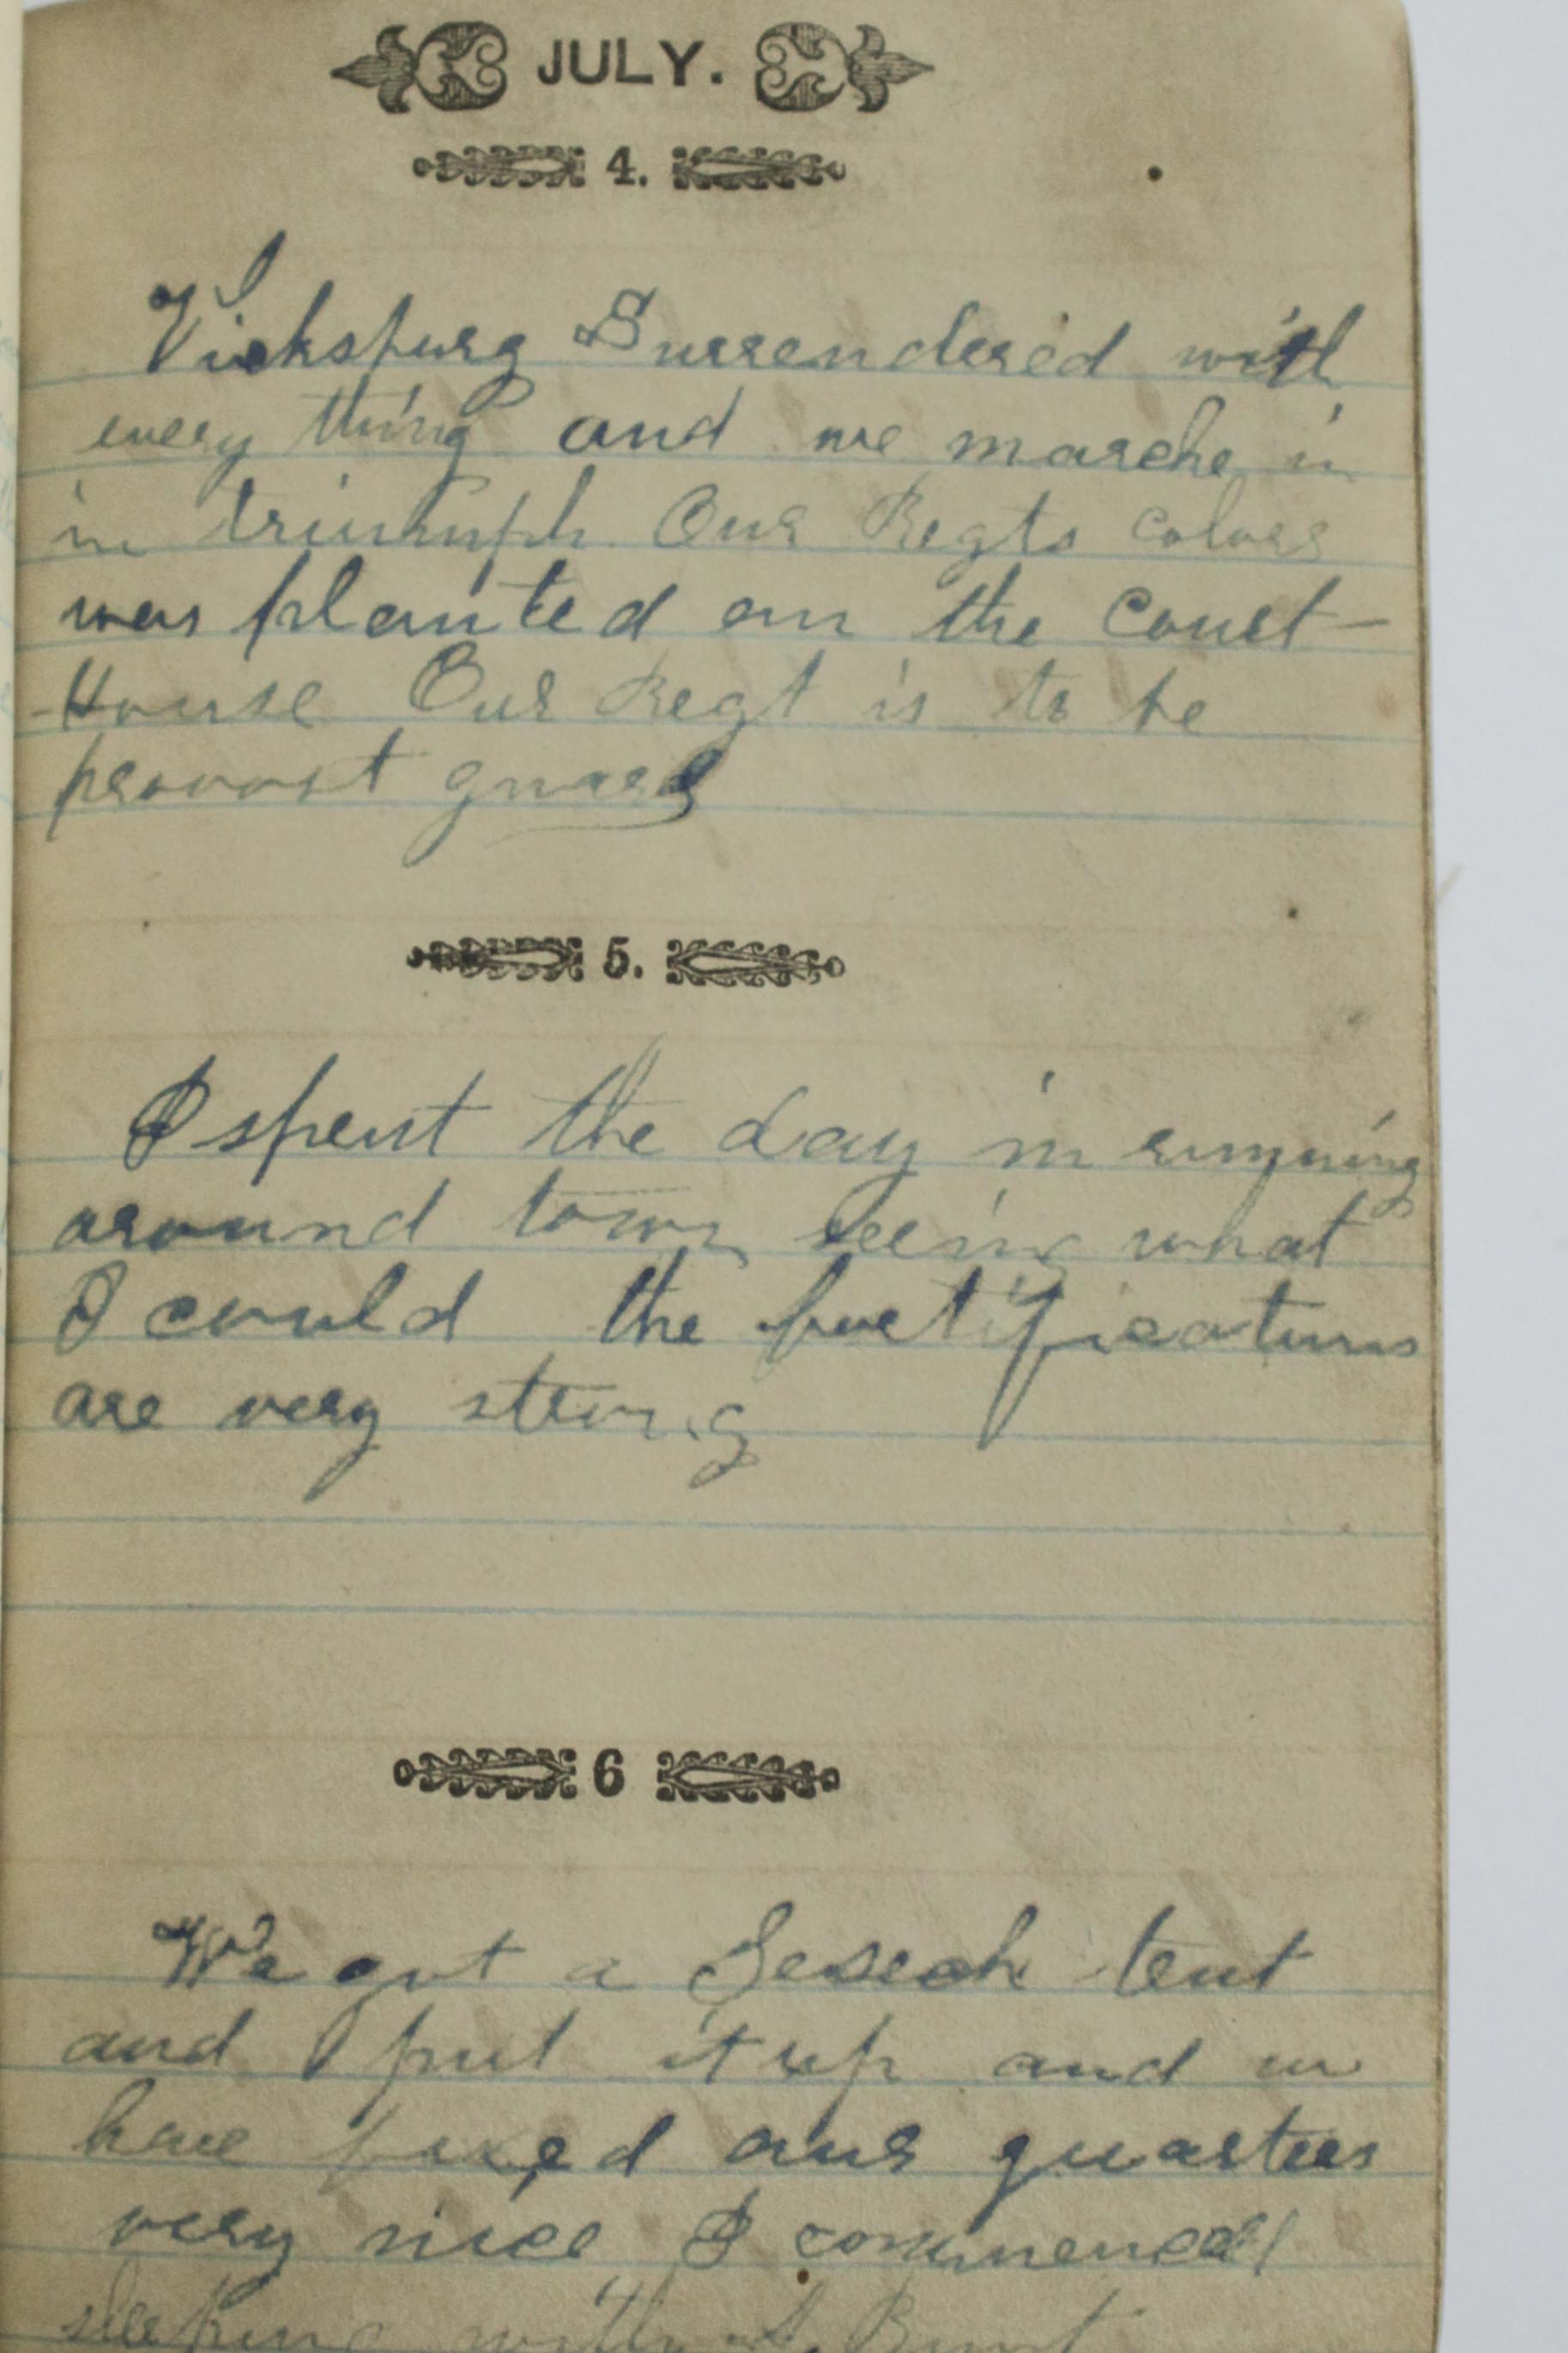 JULY.
4.
Vicksburg Surrendered with
every thing and we marche in
in triumph Our Regts colors
was planted on the Court-
-House Our Regt is to be
provost guard
5.
I spent the day in running
around town seeing what
I could the fortifications
are very strong
6
We got a Sesech tent
and put it up and we
have fixed our quarters
very nice I commenced
sleeping with